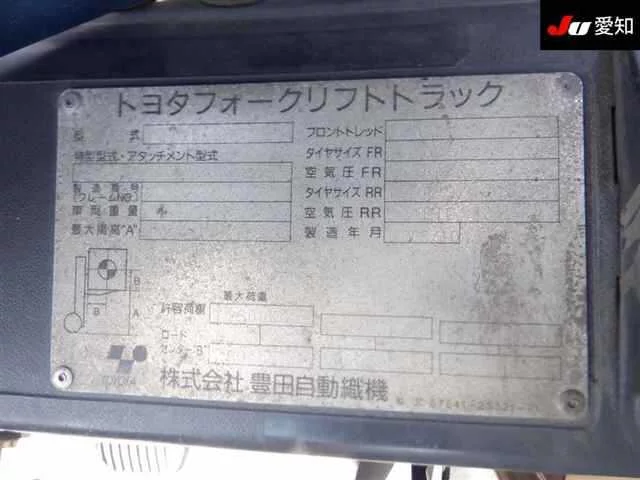 JU 愛知
トヨタフォークリフトトラック
型 式
フロントトレッド
特型型式・アタッチメント型式
タイヤサイズ FR
空気圧 FR
製造番号
(フレームNO.)
タイヤサイズ RR
車両重量
空気圧 RR
最大揚高"A"
製造年月
B
B
A
最大荷重
許容荷重
ロード
センター"B"
TOYOTA
株式会社 豊田自動織機